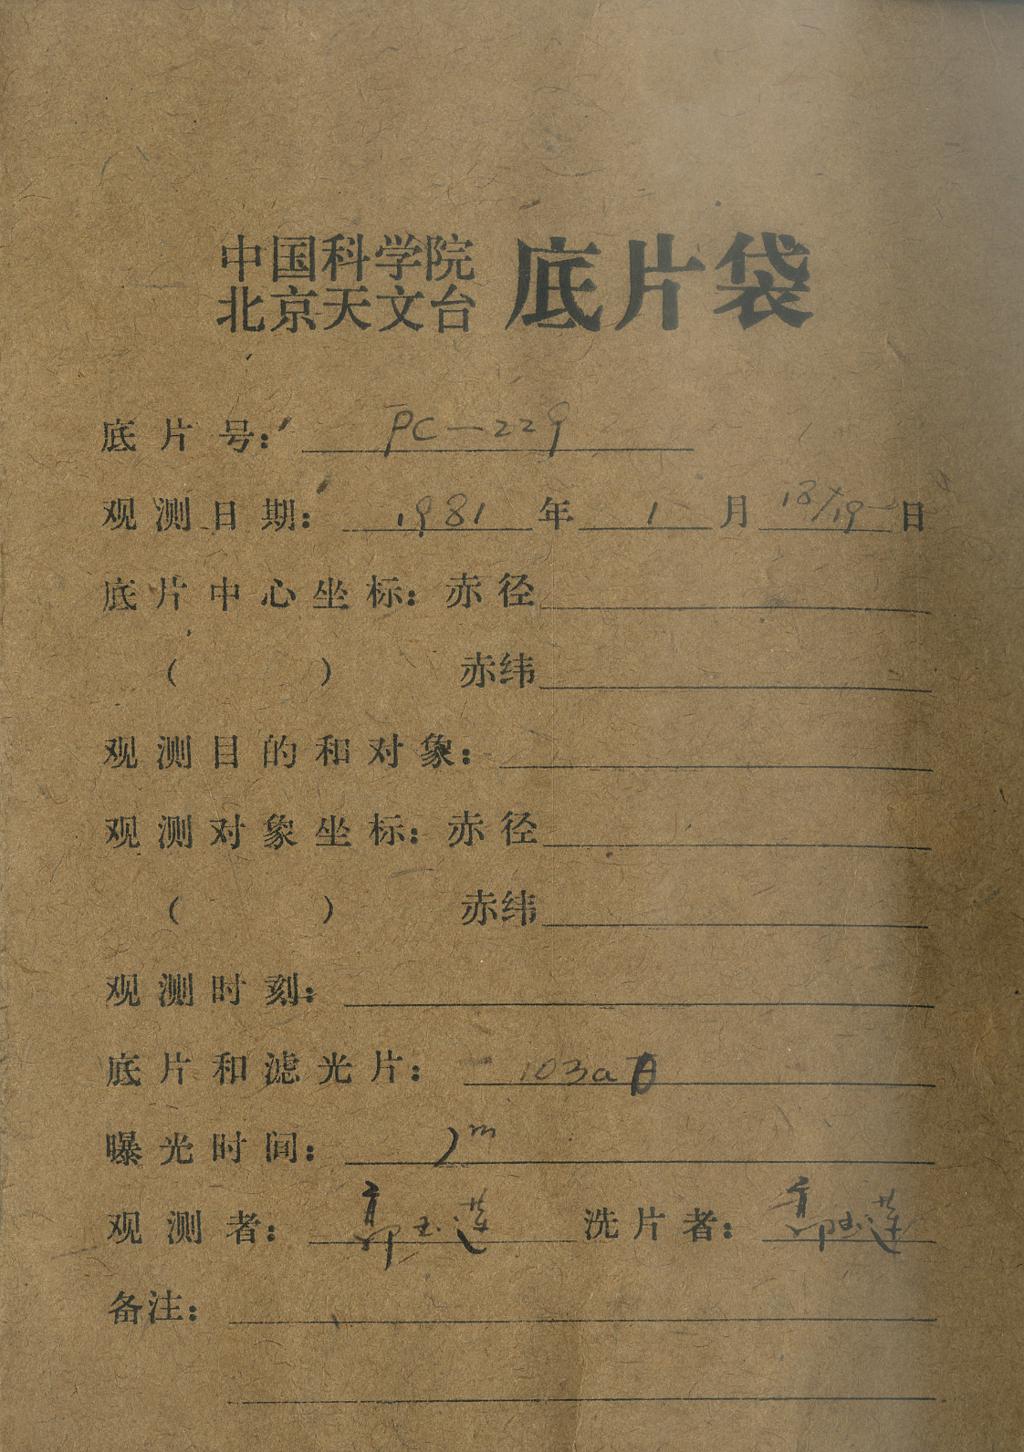 中国科学院
北京天文台 底片袋
底片号: PC-229
观测日期: 1981年1月18/19日
底片中心坐标: 赤径
( ) 赤纬
观测目的和对象:
观测对象坐标: 赤径
( ) 赤纬
观测时刻:
底片和滤光片: 103a
曝光时间: 2m
观测者: 郭玉莲 洗片者: 郭玉莲
备注: